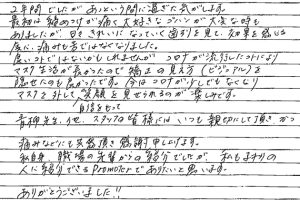 2年間でしたが、あっという間に過ぎた気がします。
最初は締めつけが痛く大好きなゴハンが大変な時も
ありましたが、日々きれいになっていく歯列を見て、効果を感じる
度に、痛みも苦ではなくなりました。
度々ストではないかもしれませんが コロナが流行したことにより
マスク生活が長かったので矯正の見え方(ビジュアル)を
隠せたのも良かったです。今はコロナが下火でもなくなり
マスクを外して、笑顔を見せられるのが楽しみです。
自信をもって
先生、他、スタッフの皆様にはいつも親切にして頂き かつ
痛みなどにも 感謝申し上げます。
私自身、職場の先輩からの紹介でしたが、私もまわりの
人に紹介できるPromoterでありたいと思います。
ありがとうございました!!